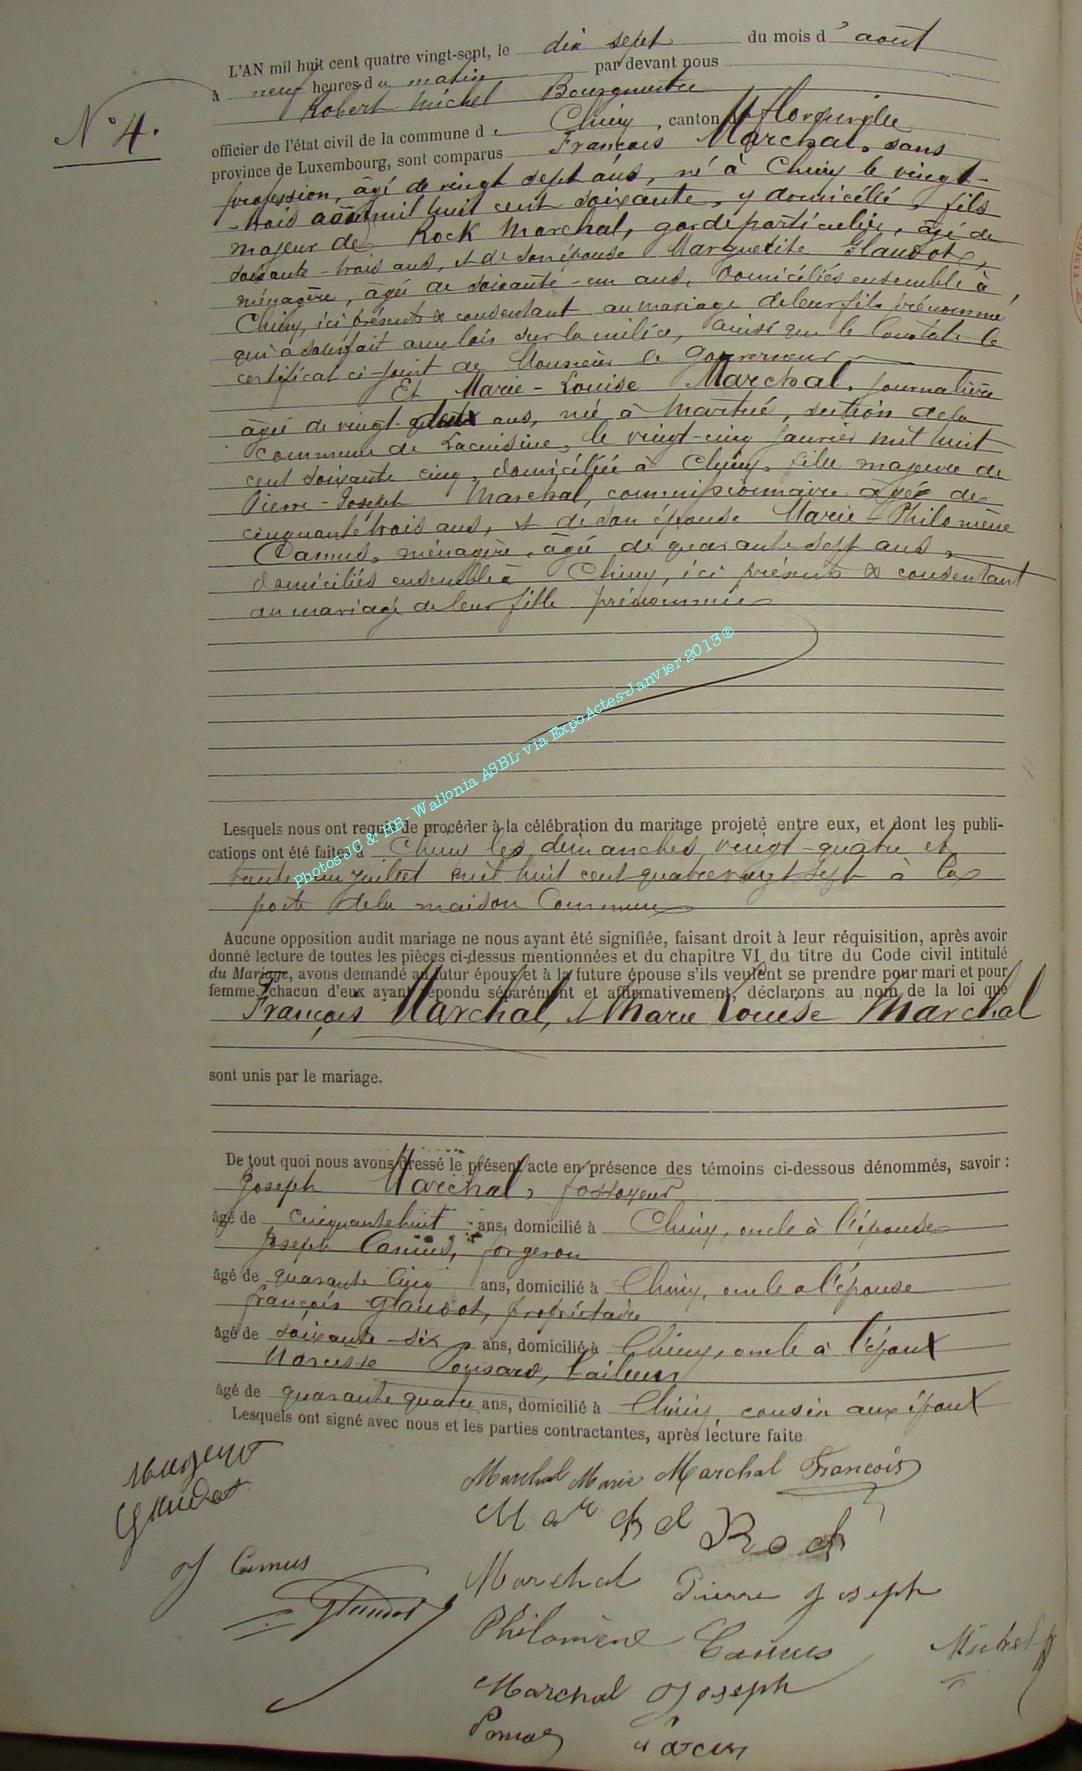 N° 4.
L'AN mil huit cent quatre vingt-sept, le dix sept du mois d'août
à neuf heures du matin par devant nous
Robert Michel Bourgmestre
officier de l'état civil de la commune de Chiny, canton de Florenville
province de Luxembourg, sont comparus François Marchal, sans
profession, âgé de vingt sept ans, né à Chiny le vingt-
trois août mil huit cent soixante, y domicilié, fils
majeur de Rock Marchal, garde particulier, âgé de
soixante-trois ans, et de son épouse Marguerite Glaudot,
ménagère, âgée de soixante-un ans, domiciliés ensemble à
Chiny, ici présents & consentant au mariage de leur fils prénommé,
qui a satisfait aux lois sur la milice, ainsi que le constate le
certificat ci-joint de Monsieur le gouverneur
Et Marie-Louise Marchal, journalière
âgée de vingt-deux ans, née à Martué, section de la
commune de Lacuisine, le vingt-cinq janvier mil huit
cent soixante cinq, domiciliée à Chiny, fille majeure de
Pierre-Joseph Marchal, commissionnaire âgé de
cinquante trois ans, et de son épouse Marie-Philomène
Camus, ménagère, âgée de quarante sept ans,
domiciliés ensemble à Chiny, ici présents & consentant
au mariage de leur fille prénommée
Photos JC & HB - Wallonia ASBL via ExpoActes-Janvier 2013®
Lesquels nous ont requis de procéder à la célébration du mariage projeté entre eux, et dont les publi-
cations ont été faites à Chiny les dimanches vingt-quatre et
trente un juillet mil huit cent quatre vingt sept à la
porte de la maison Commune
Aucune opposition audit mariage ne nous ayant été signifiée, faisant droit à leur réquisition, après avoir
donné lecture de toutes les pièces ci-dessus mentionnées et du chapitre VI du titre du Code civil intitulé
du Mariage, avons demandé au futur époux et à la future épouse s'ils veulent se prendre pour mari et pour
femme, chacun d'eux ayant répondu séparément et affirmativement, déclarons au nom de la loi que
François Marchal, et Marie Louise Marchal
sont unis par le mariage.
De tout quoi nous avons dressé le présent acte en présence des témoins ci-dessous dénommés, savoir :
Joseph Marchal, fossoyeur
âgé de cinquante huit ans, domicilié à Chiny, oncle à l'épouse
Joseph Camus, forgeron
âgé de quarante cinq ans, domicilié à Chiny, oncle à l'épouse
françois Glaudot, propriétaire
âgé de soixante-six ans, domicilié à Chiny, oncle à l'époux
Narcisse Ponsard, tailleur
âgé de quarante quatre ans, domicilié à Chiny, cousin aux époux
Lesquels ont signé avec nous et les parties contractantes, après lecture faite
Marchal Marie Marchal François
Glaudot
Marchal Roch
J Camus
Marchal Pierre joseph
Glaudot
Philomène Camus
Michel R
Marchal Joseph